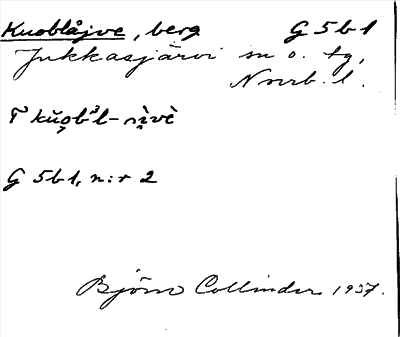 Kuoblåjve, berg G 5b1
Jukkasjärvi sn o. tg,
Nrrb. l.
G 5b1, n:r 2
Björn Collinder 1937.